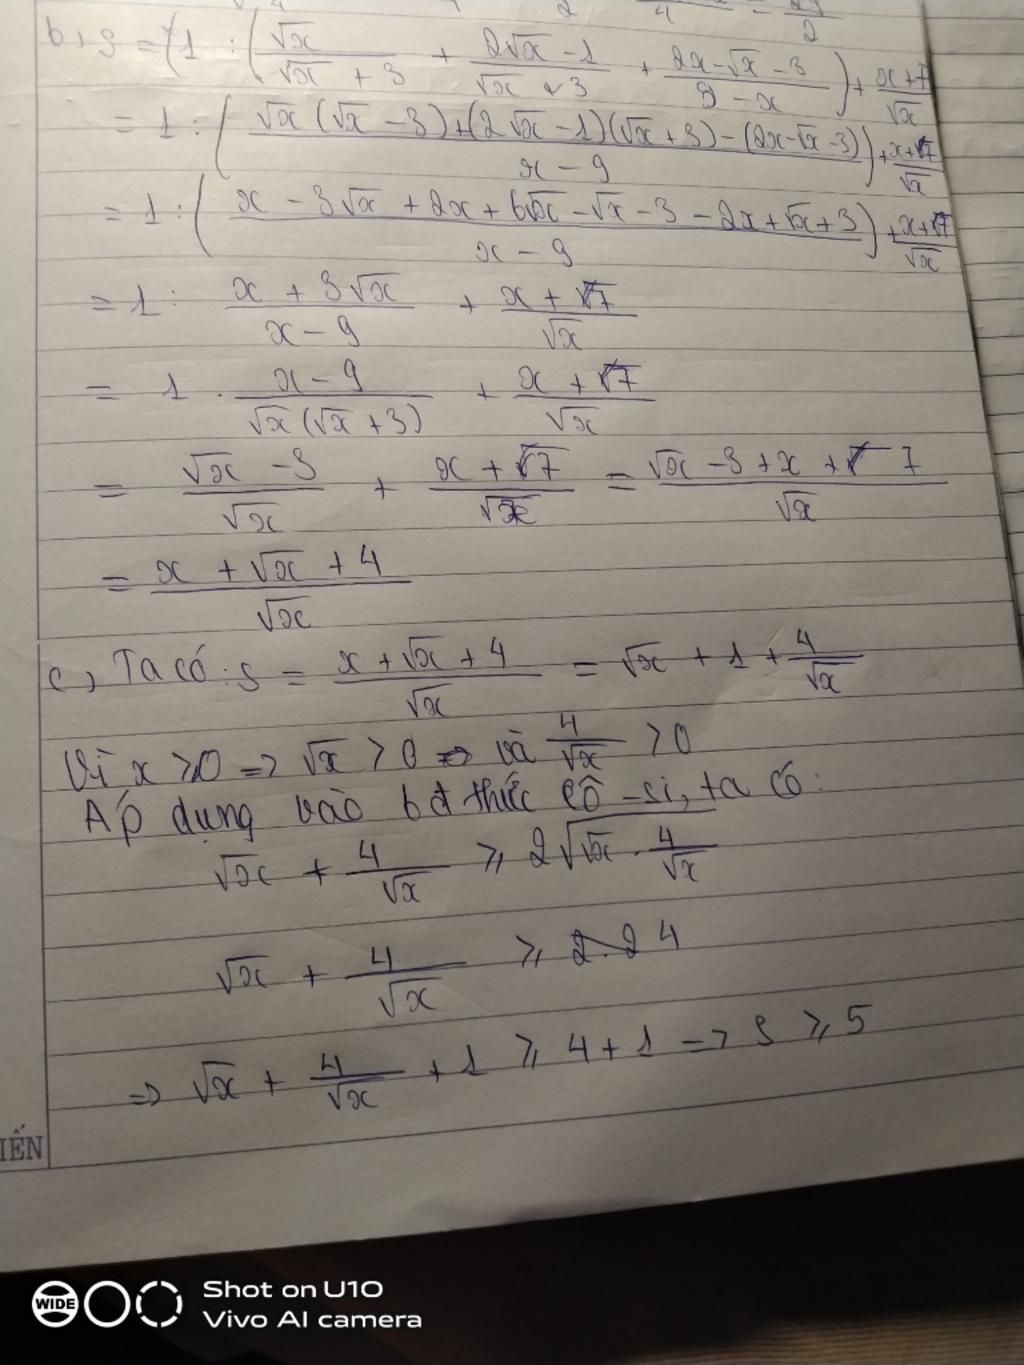 b, S = (1 : (√x/(√x + 3) + (2√x - 1)/(√x - 3) + (2x - √x - 3)/(9 - x)) + (x + 7)/√x
= 1 : ((√x (√x - 3) + (2√x - 1)(√x + 3) - (2x - √x - 3))/(x - 9)) + (x + 7)/√x
= 1 : ((x - 3√x + 2x + 6√x - √x - 3 - 2x + √x + 3)/(x - 9)) + (x + 7)/√x
= 1 : (x + 3√x)/(x - 9) + (x + 7)/√x
= 1 . (x - 9)/(√x (√x + 3)) + (x + 7)/√x
= (√x - 3)/√x + (x + 7)/√x = (√x - 3 + x + 7)/√x
= (x + √x + 4)/√x
c, Ta có : S = (x + √x + 4)/√x = √x + 1 + 4/√x
Vì x > 0 => √x > 0 => và 4/√x > 0
Áp dụng vào bđ thức Cô-si, ta có:
√x + 4/√x ⩾ 2√(√x . 4/√x)
√x + 4/√x ⩾ 4
=> √x + 4/√x + 1 ⩾ 4 + 1 => S ⩾ 5
IẾN
WIDE
Shot on U10
Vivo AI camera